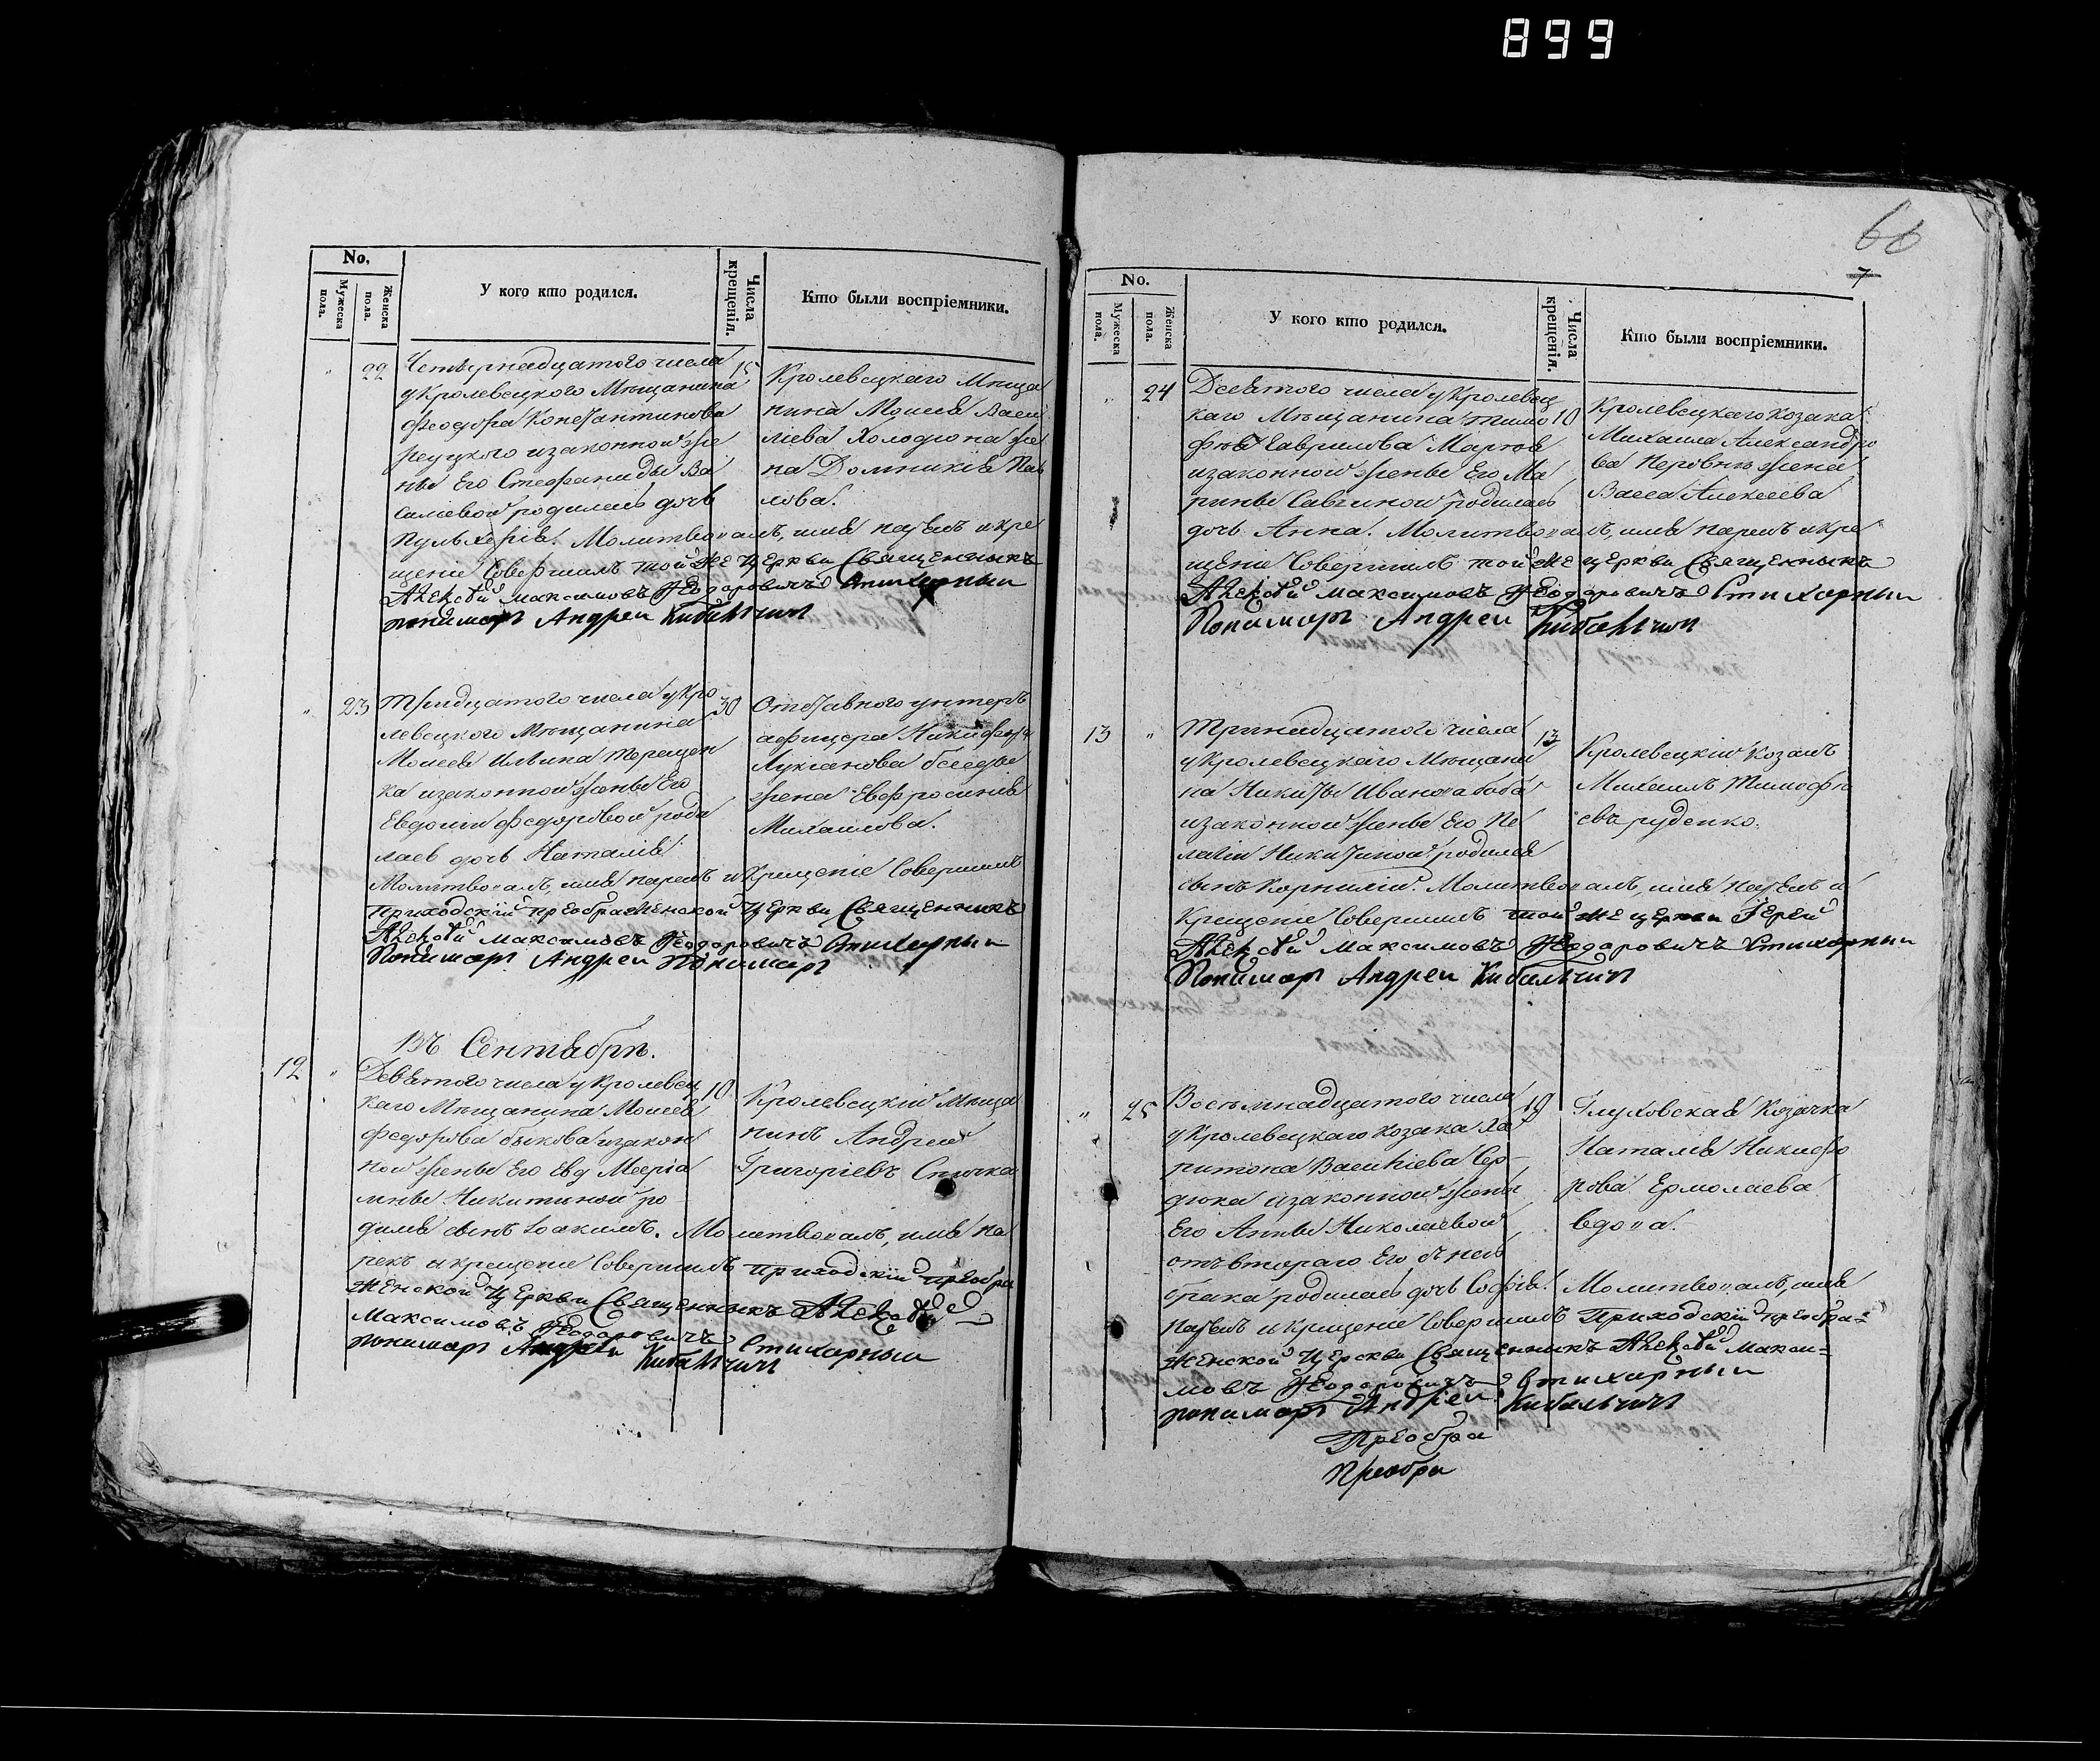 899
No.
Мужеска пола.
Женска пола.
У кого кто родился.
Числа крещенія.
Кто были воспріемники.
22
Четырнадцатого числа
у Кролевецкого Мѣщанина
Феодора Константинова
изаконной же
ны Его Стефаниды Ва
силіевой родилась дочь
Пульхерія. Молитвовалъ, имя нарекъ и кре
щеніе Совершилъ той же Церкви Священникъ
Алексѣй Максимовъ Ѳеодоровичъ Стихарный
пономарь Андрей Кибальчич
15
Кролевецкаго Мѣща
нина Моисея Васи
ліева Холодиона же
на Домникія Пав
лова.
23
Тридцатого числа у Кро
левецкого Мѣщанина
Моисея Ильина Терещен
ка изаконной жены Его
Евдокіи Федоровой роди
лась дочь Наталія
Молитвовалъ, имя нарекъ и Крещеніе Совершилъ
приходскій преображенской Церкви Священникъ
Алексѣй Максимовъ Ѳеодоровичъ Стихарный
Пономарь Андрей Пономарь
30
Отставного унтеръ
афицера Никифора
Лукіанова
жена Евфросинія
Михаилова.
Въ Сентябрѣ.
12
Девятого числа у Кролевец
каго Мѣщанина Моисея
Федорова быкова изакон
ной жены Его
Никитиной ро
дился сынъ Іоакимъ. Молитвовалъ, имя на
рекъ и крещеніе Совершилъ приходскій преобра
женской Церкви Священникъ Алексѣй
Максимовъ Ѳеодоровичъ Стихарный
пономарь Андрей Кибальчич
10
Кролевецкій Мѣща
нинъ Андрей
Григоріевъ Спичка
66
7
No.
Мужеска пола.
Женска пола.
У кого кто родился.
Числа крещенія.
Кто были воспріемники.
24
Десятого числа у Кролевец
каго Мѣщанина Тимо
фея Гаврилова
изаконной жены Его Ма
рины Саввиной родилась
дочь Анна. Молитвовалъ, имя нарекъ и кре
щеніе Совершилъ той же церкви Священникъ
Алексѣй Максимовъ Ѳеодоровичъ Стихарный
Пономарь Андрей Кибальчич
10
Кролевецкаго Козака
Михаила Александро
ва жена
Васса Алексеева
13
Тринадцатого числа
у Кролевецкаго Мѣщани
на Никиты Иванова баба
изаконной жены Его Пе
лагіи Никитиной родился
сынъ Корнилій. Молитвовалъ, имя нарекъ и
Крещеніе Совершилъ той же церкви Іерей
Алексѣй Максимовъ Ѳеодоровичъ Стихарный
Пономарь Андрей Кибальчич
13
Кролевецкій Козакъ
Михаилъ Тимофѣ
евъ руденко.
25
Восемнадцатого числа
у Кролевецкаго Козака Ха
ритона Василіева Сер-
дюка изаконной жены
Его Анны Николаевой
отъ втораго Его с нею
брака родилась дочь Софія. Молитвовалъ, имя
нарекъ и крещеніе Совершилъ Приходскій преобра-
женской Церкви Священникъ Алексѣй Макси-
мовъ Ѳеодоровичъ Стихарный
пономарь Андрей Кибальчич
19
Глуховская Козачка
Наталія Никифо
рова Ермолаева
вдова.
Преобра
Преобра